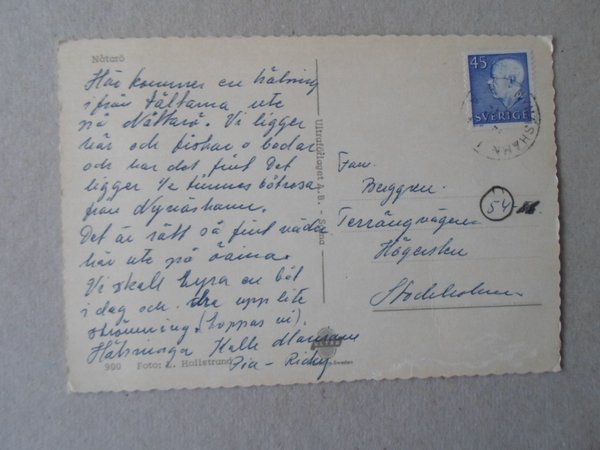 Nåtarö
Här kommer en hälsning
ifrån tältarna ute
på Nåttarö. Vi ligger
här och fiskar o badar
och har det fint Det
ligger 1/2 timmes båtresa
från Nynäshamn.
Det är rätt så fint väder
här ute på öarna.
Vi skall hyra en båt
i dag och dra upp lite
strömming. (hoppas vi).
Hälsningar Kalle Mamma
Pia - Ricky
900 Foto: Hallstrand
Ultraförlaget A.-B. - Solna
45
SVERIGE
Fam.
Berggren
54
Terrängvägen
Hägersten
Stockholm
Sweden